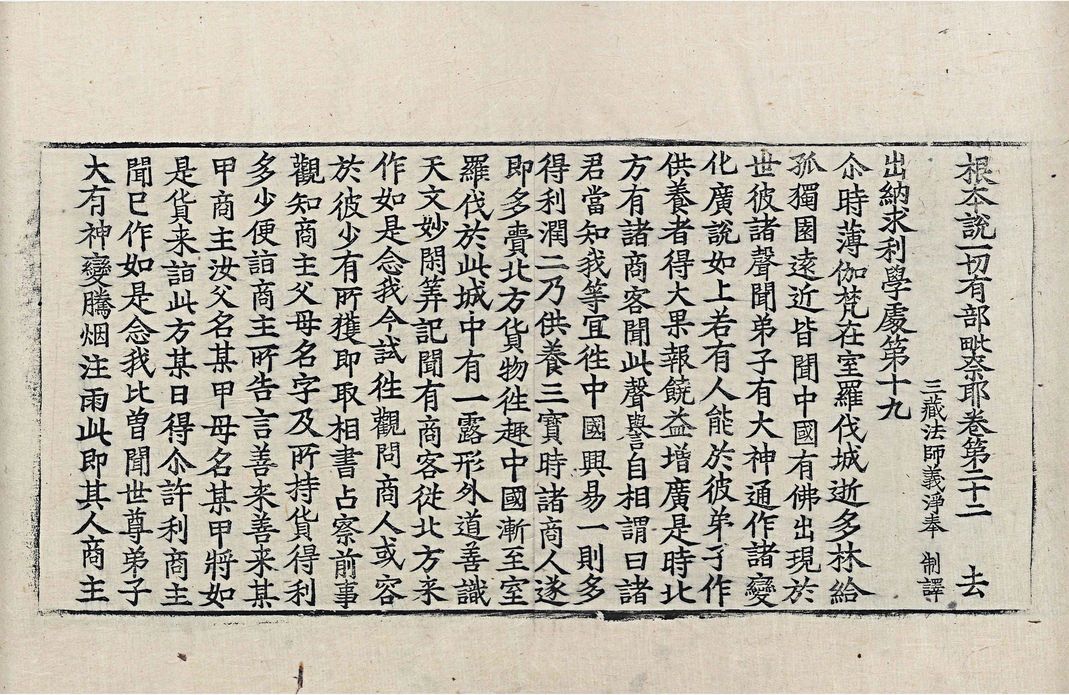 根本說一切有部毗奈耶卷第二十二 去
三藏法師義淨奉 制譯
出納求利學處第十九
尒時薄伽梵在室羅伐城逝多林給
孤獨園遠近皆聞中國有佛出現於
世彼諸聲聞弟子有大神通作諸變
化廣說如上若有人能於彼弟子作
供養者得大果報饒益增廣是時北
方有諸商客聞此聲譽自相謂曰諸
君當知我等宜往中國興易一則多
得利潤二乃供養三寶時諸商人遂
即多賷北方貨物往趣中國漸至室
羅伐於此城中有一露形外道善識
天文妙閑筭記聞有商客從北方来
作如是念我今試往觀問商人或容
於彼少有所獲即取相書占察前事
觀知商主父母名字及所持貨得利
多少便詣商主所告言善来善来某
甲商主汝父名某甲母名某甲將如
是貨来詣此方某日得尒許利商主
聞已作如是念我比曽聞世尊弟子
大有神變騰烟注雨此即其人商主